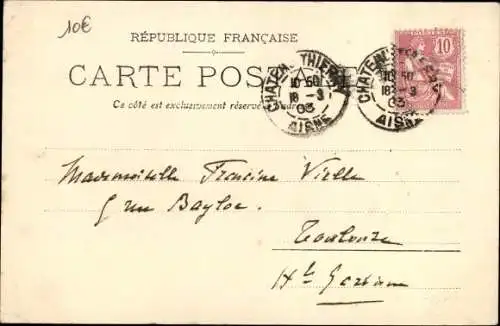 10€
RÉPUBLIQUE FRANÇAISE
CARTE POSTALE
Ce côté est exclusivement réservé
CHATEAU THIERRY
10 50
18 - 3
03
AISNE
CHATEAU
10 50
18 - 3
03
AISNE
10
Mademoiselle Francine Vielle
5 rue Bayle.
Toulouse
Hte Garonne